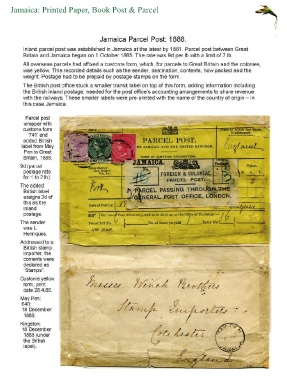 Jamaica: Printed Paper, Book Post & Parcel
Jamaica Parcel Post: 1888.
Inland parcel post was established in Jamaica at the latest by 1881. Parcel post between Great
Britain and Jamaica began on 1 October 1885. The rate was 9d per lb with a limit of 7 lb.
All overseas parcels had affixed a customs form, which, for parcels to Great Britain and the colonies,
was yellow. This recorded details such as the sender, destination, contents, how packed and the
weight. Postage had to be prepaid by postage stamps on the form.
The British post office stuck a smaller transit label on top of this, adding information including
the British inland postage, needed for the post office's accounting arrangements to share revenue
with the railways. These smaller labels were pre-printed with the name of the country of origin – in
this case Jamaica.
Parcel post
wrapper with
customs form
"741" and
added British
label from May
Pen to Great
Britain, 1888.
9d parcel
postage rate
for 1 to 2 lb.
The added
British label
assigns 3d of
this as the
inland
postage.
The sender
was L.
Henriques.
Addressed to a
British stamp
importer, the
contents were
declared as
'Stamps'.
Customs yellow
form, print
date 28.4.86.
May Pen:
640;
18 December
1888.
Kingston:
18 December
1888 (under
the British
label).
PARCEL POST.
England
JAMAICA
FOREIGN & COLONIAL
PARCEL POST.
PARCEL PASSING THROUGH THE
GENERAL POST OFFICE, LONDON.
Messrs Winch Brothers
Stamp Importers
Colchester
England